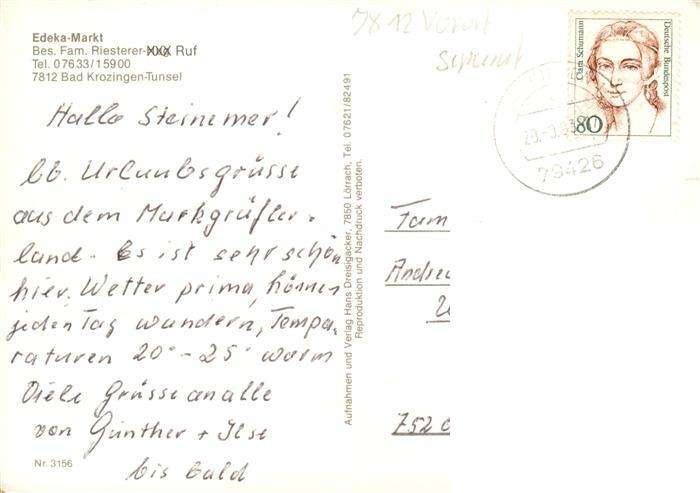 Edeka-Markt
Bes. Fam. Riesterer-XXX Ruf
Tel. 07633/15900
7812 Bad Krozingen-Tunsel
Hallo Steinemer!
lb. Urlaubsgrüsse
aus dem Markgräfler-
land. Es ist sehr schön
hier. Wetter prima, können
jeden Tag wandern, Tempa-
raturen 20°-25° warm
Viele Grüsse an alle
von Günther + Ilse
bis bald
Nr. 3156
Aufnahmen und Verlag Hans Dreisigacker, 7850 Lörrach, Tel. 07621/82491
Reproduktion und Nachdruck verboten.
7812
Clara Schumann
Deutsche Bundespost
80
79426
Fam
Andrea
752